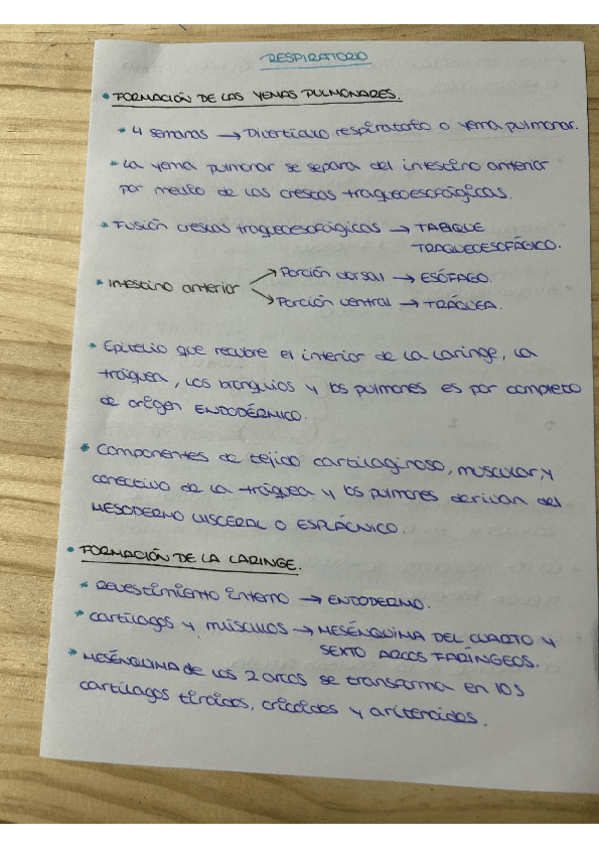 RESPIRATORIO
• FORMACIÓN DE LAS YEMAS PULMONARES.
* 4 semanas → Divertículo respiratorio o yema pulmonar.
* La yema pulmonar se separa del intestino anterior
por medio de las crestas traqueoesofágicas.
* Fusión crestas traqueoesofágicas → TABIQUE
TRAQUEOESOFÁGICO.
* Intestino anterior
→ Porción dorsal → ESÓFAGO.
→ Porción ventral → TRÁQUEA.
* Epitelio que recubre el interior de la laringe, la
tráquea, los bronquios y los pulmones es por completo
de origen ENDODÉRMICO.
* Componentes de tejido cartilaginoso, muscular, y
conectivo de la tráquea y los pulmones derivan del
MESODERMO VISCERAL O ESPLÁCNICO.
• FORMACIÓN DE LA LARINGE.
* Revestimiento interno → ENDODERMO.
* Cartílagos y músculos → MESÉNQUIMA DEL CUARTO Y
SEXTO ARCOS FARÍNGEOS.
* MESÉNQUIMA de los 2 arcos se transforma en los
cartílagos tiroides, cricoides y aritenoides.